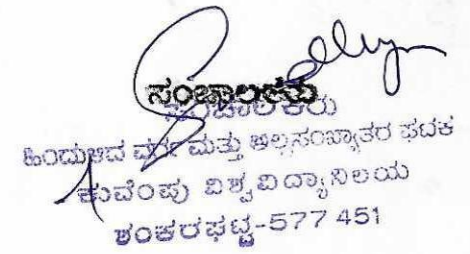 ಸಂಚಾಲಕರು
ಸಂಚಾಲಕರು
ಹಿಂದುಳಿದ ವರ್ಗ ಮತ್ತು ಅಲ್ಪಸಂಖ್ಯಾತರ ಘಟಕ
ಕುವೆಂಪು ವಿಶ್ವವಿದ್ಯಾನಿಲಯ
ಶಂಕರಘಟ್ಟ-577 451